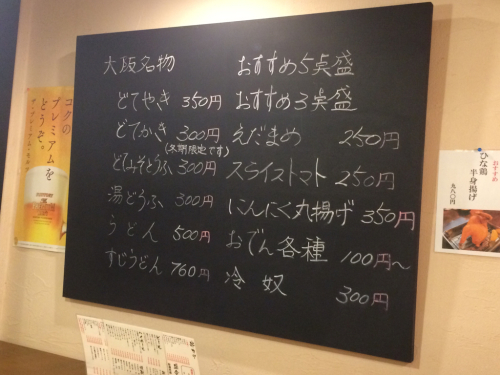 大阪名物
どてやき 350円
どてかき 300円
(冬期限定です)
どてみそとうふ 300円
湯どうふ 300円
うどん 500円
すじうどん 760円
おすすめ5点盛
おすすめ3点盛
えだまめ 250円
スライストマト 250円
にんにく丸揚げ 350円
おでん各種 100円～
冷奴 300円
コクの
プレミアムを
どうぞ。
おすすめ
ひな鶏
半身揚げ
九八〇円